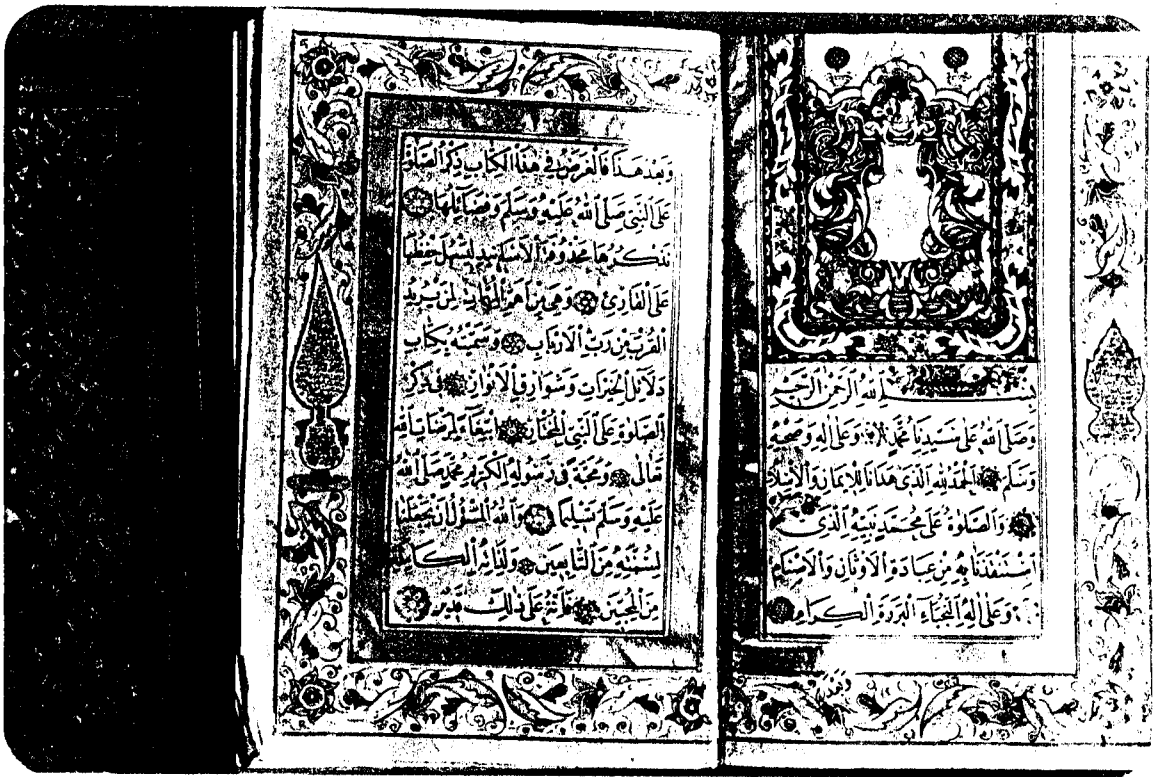 بِسْمِ اللهِ الرَّحْمٰنِ الرَّحِيمِ
وَصَلَّى اللهُ عَلٰى سَيِّدِنَا مُحَمَّدٍ وَعَلٰى اٰلِهِ وَصَحْبِهِ
وَسَلَّمَ اَلْحَمْدُ لِلّٰهِ الَّذِى هَدَانَا لِلْاِيمَانِ وَالْاِسْلَامِ
وَالصَّلٰوةُ عَلٰى مُحَمَّدٍ نَبِيِّهِ الَّذِى
اِسْتَنْقَذَنَا بِهِ مِنْ عِبَادَةِ الْاَوْثَانِ وَالْاَصْنَامِ
وَعَلٰى اٰلِهِ النُّجَبَاءِ الْبَرَرَةِ الْكِرَامِ
وَبَعْدَ هٰذَا فَالْغَرَضُ فِى هٰذَا الْكِتَابِ ذِكْرُ الصَّلٰوةِ
عَلَى النَّبِىِّ صَلَّى اللهُ عَلَيْهِ وَسَلَّمَ وَفَضَائِلُهَا
نَذْكُرُهَا مَحْذُوفَةَ الْاَسَانِيدِ لِيَسْهُلَ حِفْظُهَا
عَلَى الْقَارِئِ وَهِىَ مِنْ اَهَمِّ الْمُهِمَّاتِ لِمَنْ يُرِيدُ
الْقُرْبَ مِنْ رَبِّ الْاَرْبَابِ وَسَمَّيْتُهُ بِكِتَابِ
دَلَائِلِ الْخَيْرَاتِ وَشَوَارِقِ الْاَنْوَارِ فِى ذِكْرِ
الصَّلٰوةِ عَلَى النَّبِىِّ الْمُخْتَارِ اِبْتِغَاءً لِمَرْضَاتِ اللهِ
تَعَالٰى وَمَحَبَّةً فِى رَسُولِهِ الْكَرِيمِ مُحَمَّدٍ صَلَّى اللهُ
عَلَيْهِ وَسَلَّمَ تَسْلِيمًا وَاللهُ الْمَسْؤُلُ اَنْ يَجْعَلَنَا
لِسُنَّتِهِ مِنَ التَّابِعِينَ وَلِذَاتِهِ الْكَامِلَةِ
مِنَ الْمُحِبِّينَ فَاِنَّهُ عَلٰى ذٰلِكَ قَدِيرٌ